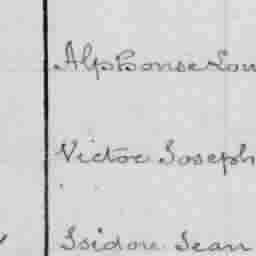 Alphonse Lou
Victor Joseph
Isidore Jean